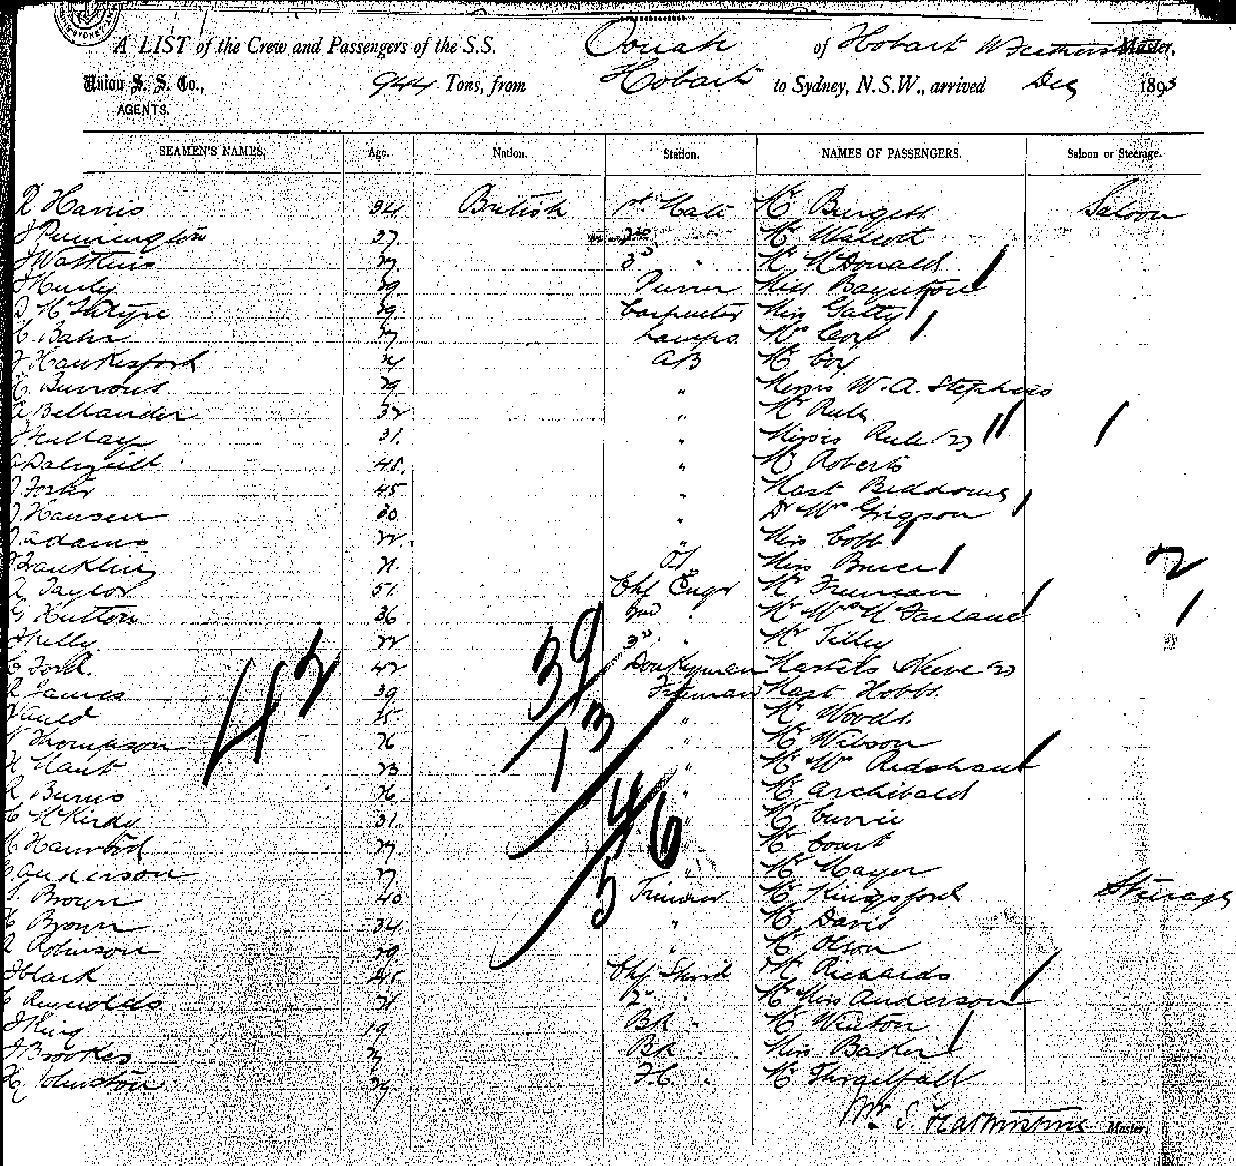 A LIST of the Crew and Passengers of the S.S. Oonah of Hobart Master,
Union S. S. Co., 944 Tons, from Hobart to Sydney, N.S.W., arrived Dec 1893
AGENTS.
SEAMEN'S NAMES. Age. Nation. Station. NAMES OF PASSENGERS. Saloon or Steerage.
R Harris 34 British 1st Mate Mr Burgess Saloon
J Pennington 37 2nd Mr Walcott
J Watkins 3rd " Mr McDonald
J Hurley 39 Purser Miss Baynton
D McIntyre 29 Carpenter Miss Gatty
C Bahr 27 Lamps
J Hawkesford AB Mr Coy
Burrows 29 " Messrs W. A. Stephens
A Bellander 32 " Mr Rule
31 " Misses Rule (2)
Dalyell 45 " Mr Roberts
J Foster 45 " Mast Beddome
J Hansen 30 " Dr Mrs Grigson
J Adams 22 " Miss Cobb
Franklin 21 OS Miss Bruce 2
R Taylor 51 Chf Engr Mr Freeman
G Hutton 36 2nd " Mr Mrs McFarland
J Kelly 22 3rd " Mr Tilley
Ford 42 Donkeyman Masters Steere (2)
R James 39 Fireman Mast Hobbs
Auld 25 " Mr Woods
Thompson 26 " Mr Wilson
Hart 23 " Mr Mrs Ridshaut
R Burns 26 " Mr Archibald
McKirdy 31 " Mr Currie
Harwood 27 " Mr Court
Anderson 27 " Mr Mayer
Brown 40 Trimmer Mr Kingsford Steerage
Brown 34 " Mr Davis
R Robinson 29 " Mr Olson
J Clark 45 Chf Stwd Mr Richards
Reynolds 21 2nd " Mr Miss Anderson
J King 19 BR " Mr Winton
J Brookes BR Miss Baker
H Johnston 29 F.C. " Mr Thirgelfall
42 39 13 46 5
Wm S. Featherstone Master